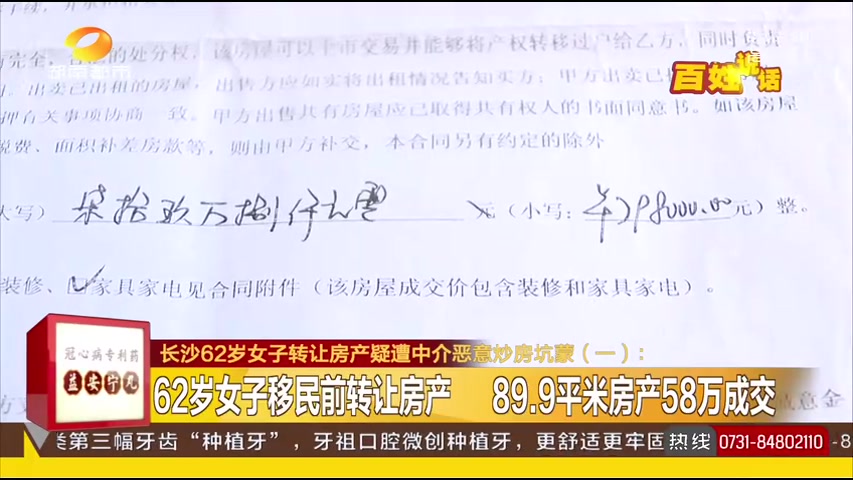 方完全、合法的处分权，该房屋可以上市交易并能够将产权转移过户给乙方，同时负责
出卖已出租的房屋，出售方应如实将出租情况告知买方；甲方出卖已
押有关事项协商一致。甲方出售共有房屋应已取得共有权人的书面同意书。如该房屋
税费、面积补差房款等，则由甲方补交，本合同另有约定的除外
百姓说话
湖南都市
大写）柒拾玖万捌仟元整 元（小写：￥798000.00元）整。
装修、家具家电见合同附件（该房屋成交价包含装修和家具家电）。
冠心病专利药
益安宁丸
长沙62岁女子转让房产疑遭中介恶意炒房坑蒙（一）：
62岁女子移民前转让房产 89.9平米房产58万成交
意金
类第三幅牙齿“种植牙”，牙祖口腔微创种植牙，更舒适更牢固
热线 0731-84802110
-8